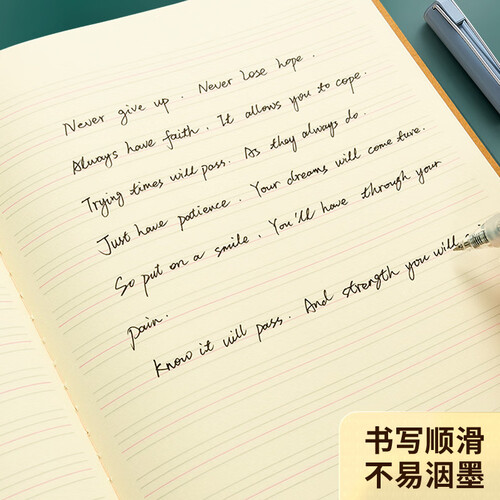 Never give up. Never Lose hope.
Always have faith. It allows you to cope.
Trying times will pass. As they always do.
Just have patience. Your dreams will come ture.
So put on a smile. You'll have through your
pain.
Know it will pass. And strength you will
书写顺滑
不易洇墨